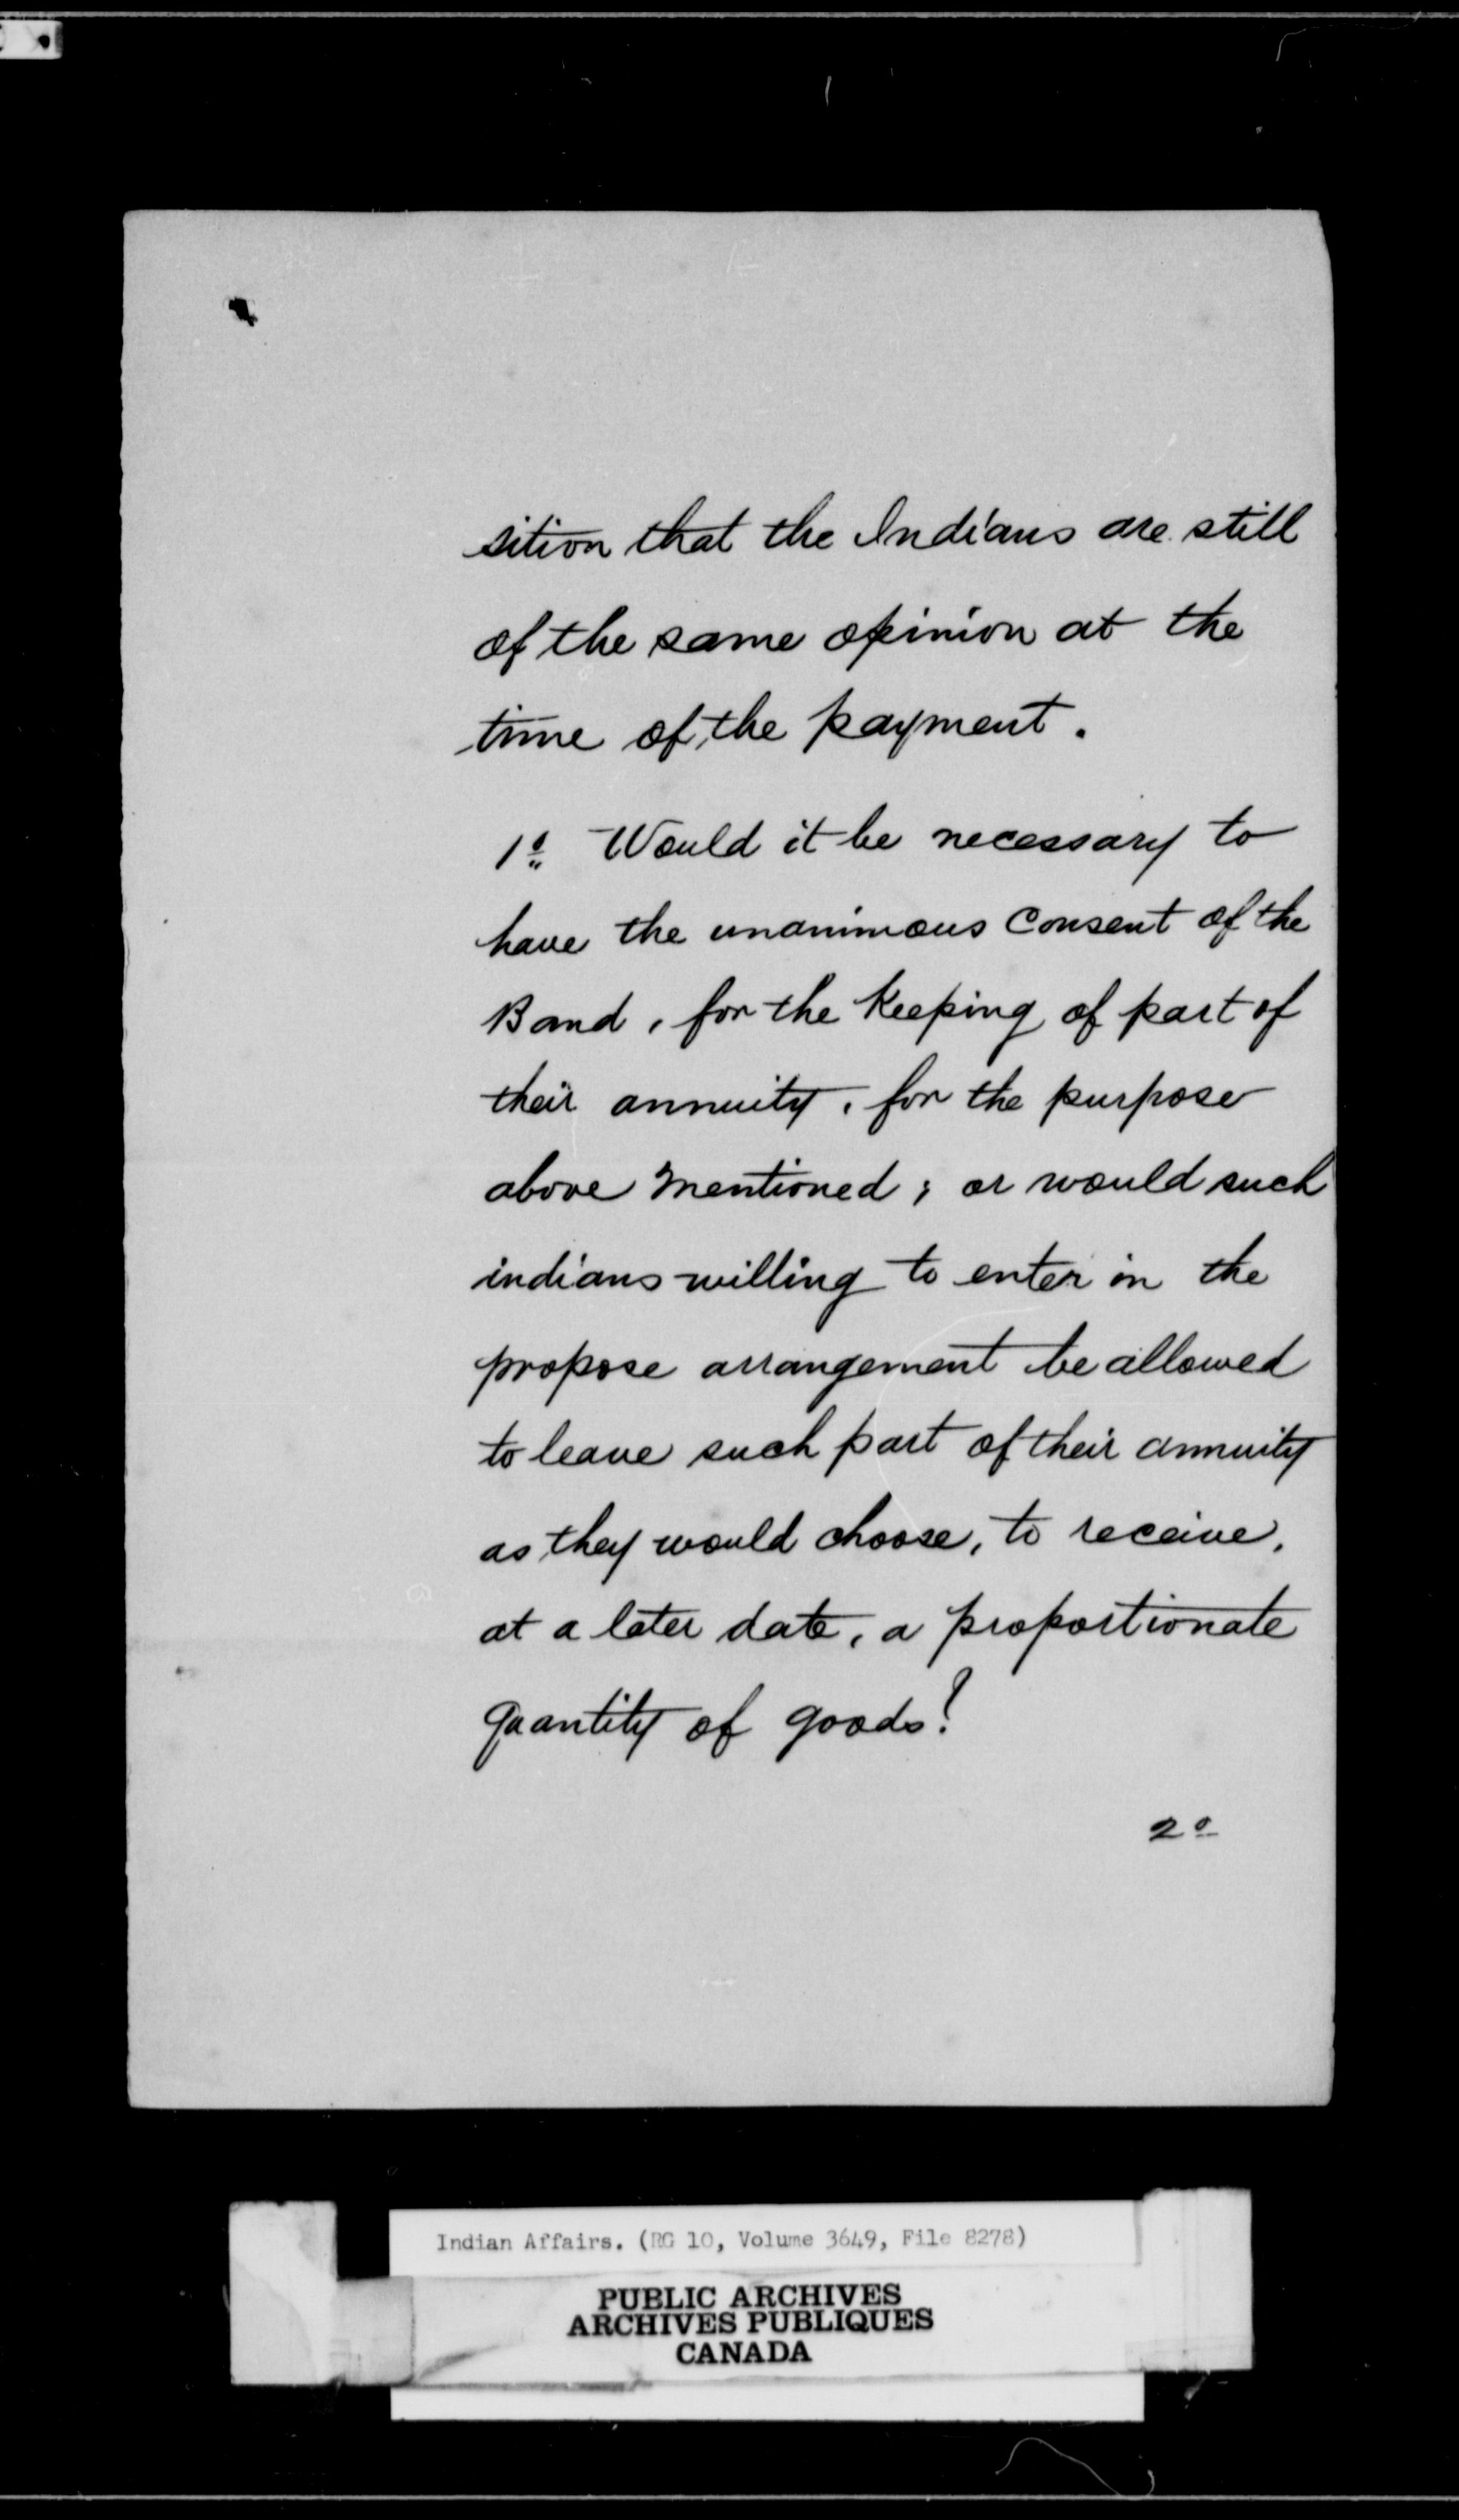 sition that the Indians are still
of the same opinion at the
time of the payment.
1º Would it be necessary to
have the unanimous Consent of the
Band, for the Keeping of part of
their annuity, for the purpose
above mentioned; or would such
indians willing to enter in the
propose arrangement be allowed
to leave such part of their annuity
as they would choose, to receive,
at a later date, a proportionate
quantity of goods?
2º
Indian Affairs. (RG 10, Volume 3649, File 8278)
PUBLIC ARCHIVES
ARCHIVES PUBLIQUES
CANADA